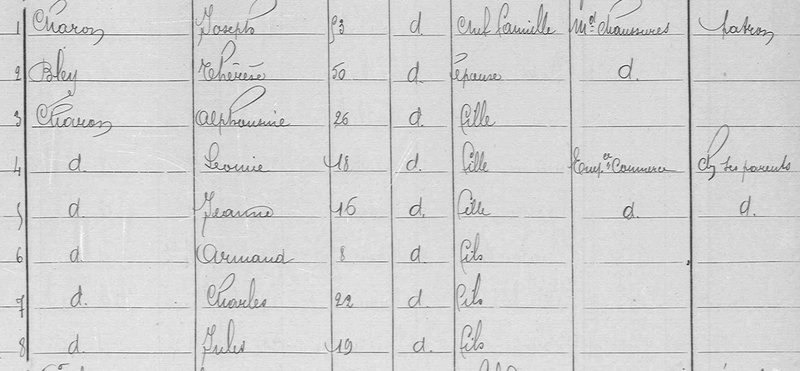 1 Charon Joseph 53 d. Chef famille Md Chaussures patron
2 Bley Thérèse 50 d. épouse d.
3 Charon Alphonsine 26 d. fille
4 d. Léonie 18 d. fille Empée Commerce Chz ses parents
5 d. Jeanne 16 d. fille d. d.
6 d. Armand 8 d. fils
7 d. Charles 22 d. fils
8 d. Jules 19 d. fils